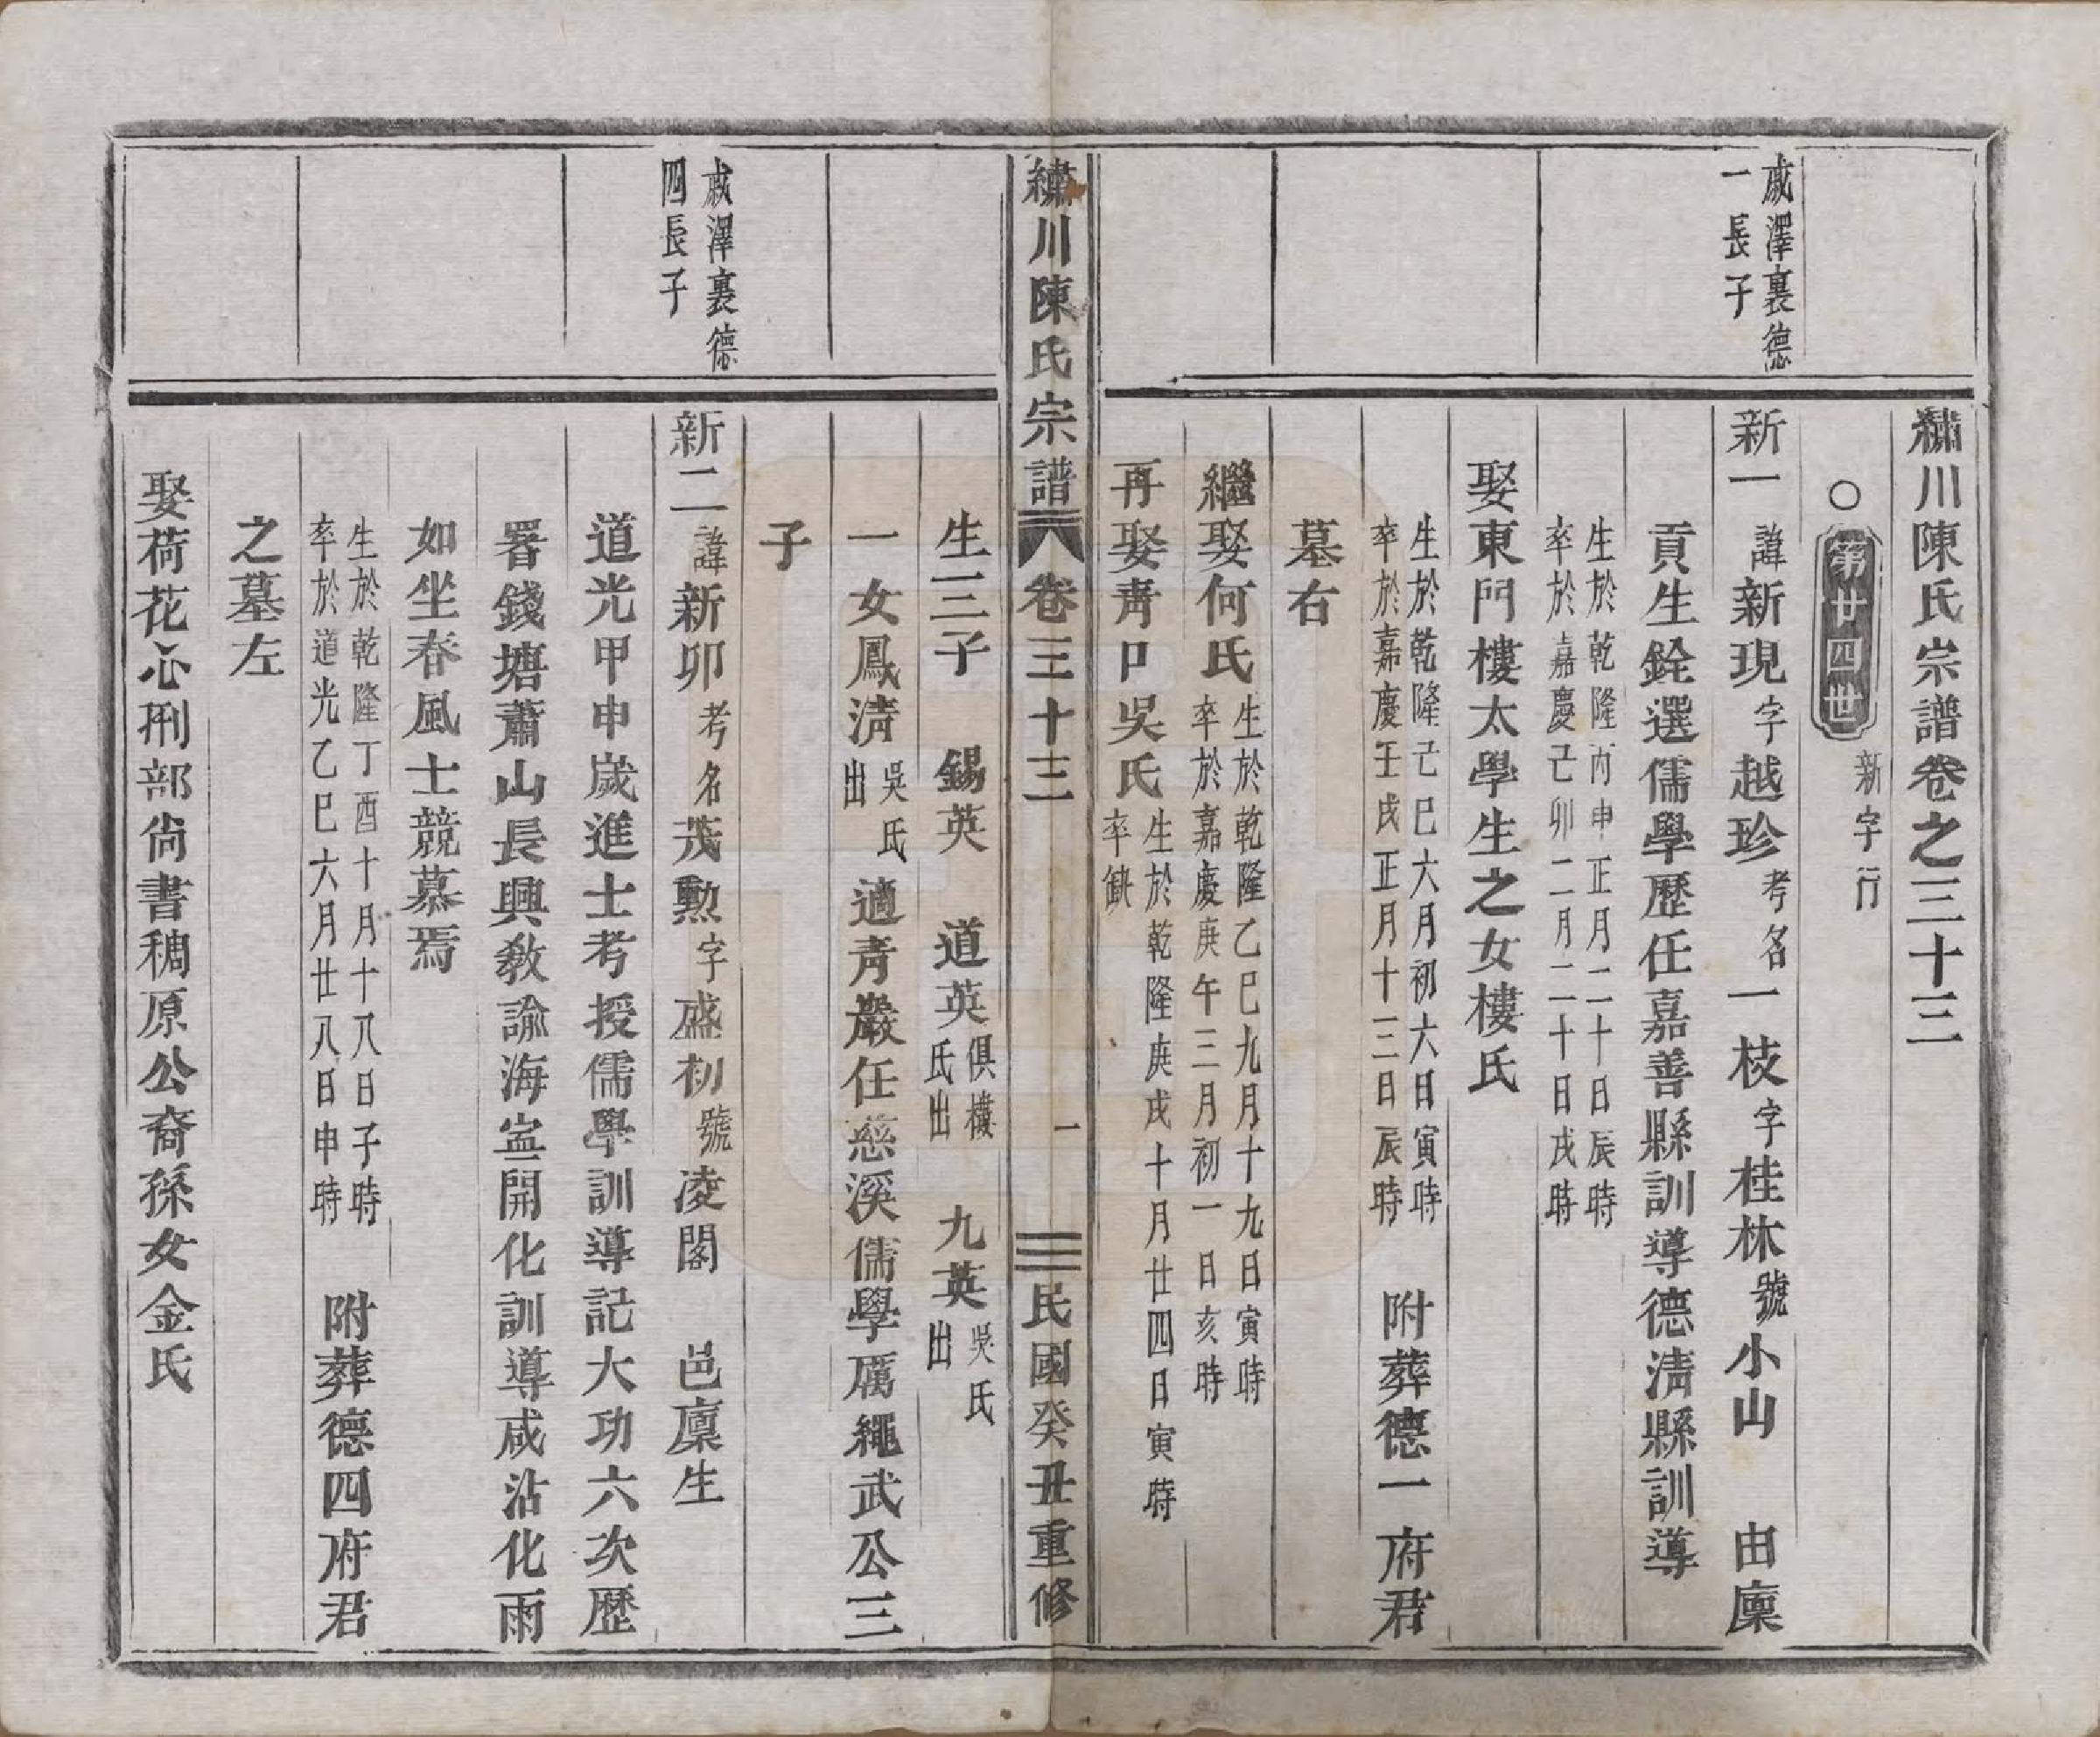 繡川陳氏宗譜卷之三十三
○第廿四世 新字行
戚澤裏德
一長子
新一 諱新現字越珍考名一枝字桂林號小山 由廩
貢生銓選儒學歷任嘉善縣訓導德淸縣訓導
生於乾隆丙申正月二十日辰時
卒於嘉慶己卯二月二十日戌時
娶東門樓太學生之女樓氏
生於乾隆己巳六月初六日寅時
卒於嘉慶壬戌正月十三日辰時
附葬德一府君
墓右
繼娶何氏
生於乾隆乙巳九月十九日寅時
卒於嘉慶庚午三月初一日亥時
再娶靑口吳氏
生於乾隆庚戌十月廿四日寅時
卒缺
繡川陳氏宗譜 卷三十三 一 民國癸丑重修
生三子 錫英 道英
俱樓
氏出
九英
吳氏
出
一女鳳淸
吳氏
出
適靑巖任慈溪儒學厲繩武公三
子
戚澤裏德
四長子
新二 諱新卯考名茂勲字盛初號凌閣 邑廩生
道光甲申歲進士考授儒學訓導記大功六次歷
署錢塘蕭山長興敎諭海寍開化訓導咸沾化雨
如坐春風士競慕焉
生於乾隆丁酉十月十八日子時
卒於道光乙巳六月廿八日申時
附葬德四府君
之墓左
娶荷花心刑部尙書稠原公裔孫女金氏